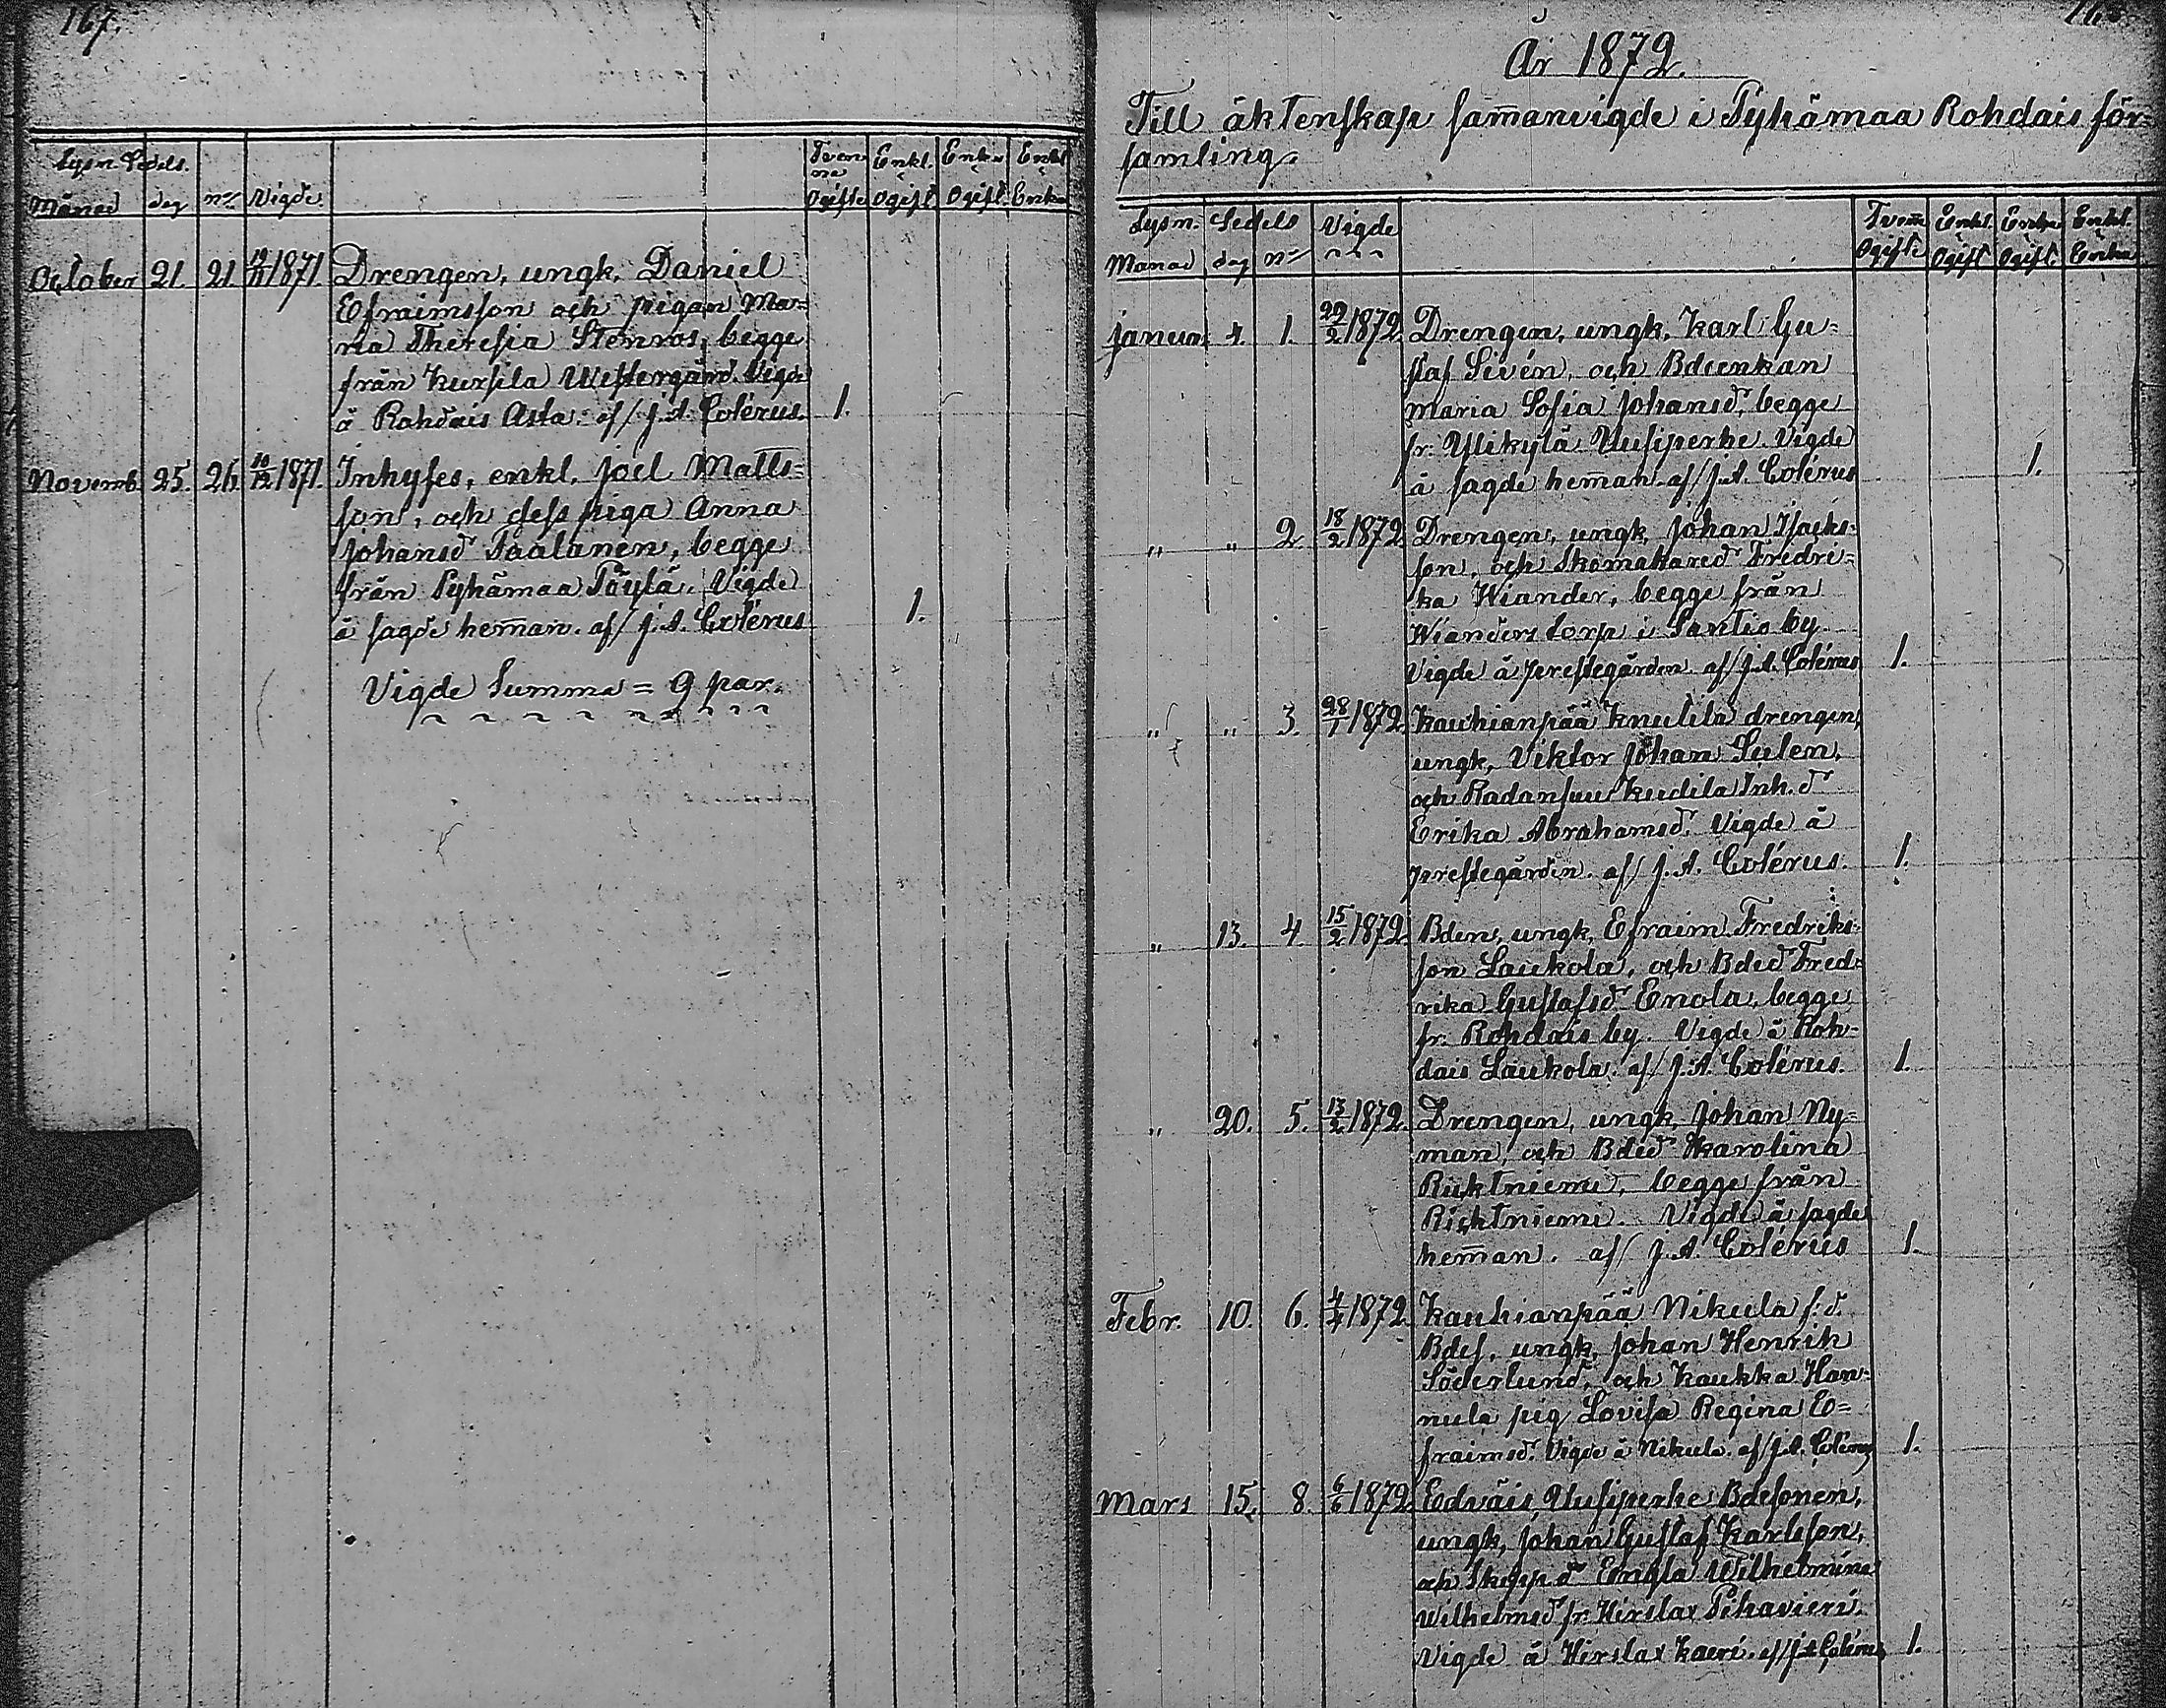 167.
Lysn. Sedels.
Månad dag n:o Vigde. Tvenne Ogifte Enkl. Ogift. Enka Ogift. Enkl. Enka
October 21. 21. 1871. Drengen, ungk. Daniel
Efraimsson och pigan Ma-
ria Theresia Stenros, begge
från Kursila Westergård. Vigde
å Rohdais Asta. af/ J. A. Colérus. 1.
Novemb. 25. 26. 10/12 1871. Inhyses, enkl. Joel Matts-
son, och dess piga Anna
Johansd:r Taalanen, begge
från Pyhämaa Pöylä. Vigde
å sagde heman. af/ J. A. Colérus 1.
Vigde Summa = 9 par.
År 1872.
Till äktenskap samanvigde i Pyhämaa Rohdais för-
samling.
Lysn. Sedels Vigde Tvenne Enkl. Enka Enkl.
Månad dag n:o Ogifte Ogift Ogift. Enka
Januar 4. 1. 22/2 1872. Drengen, ungk. Karl Gu-
staf Sivén, och Bdeenkan
Maria Sofia Johansd:r, begge
fr. Ylikylä Uusiperhe. Vigde
å sagde heman. af/ J. A. Colérus 1.
" " 2. 18/2 1872. Drengen, ungk. Johan Isacks-
son, och Skomakared:r Fredri-
ka Wiander, begge från
Wianders torp i Santio by.
Vigde å Prestegården. af/ J. A. Colérus 1.
" " 3. 28/1 1872. Kauhianpää Knutila drengen,
ungk. Viktor Johan Sulen,
och Radansuu Kudila Inh. d:r
Erika Abrahamsd:r. Vigde å
Prestegården. af/ J. A. Colérus. 1.
" 13. 4. 15/2 1872. Bden, ungk. Efraim Fredriks-
son Laukola, och Bded:r Fred-
rika Gustafsd:r Enola, begge
fr. Rohdais by. Vigde å Roh-
dais Laukola. af/ J. A. Colérus. 1.
" 20. 5. 13/2 1872. Drengen, ungk. Johan Ny-
man, och Bded:r Karolina
Ruktniemi, begge från
Ricktniemi. Vigde å sagde
heman. af/ J. A. Colérus 1.
Febr. 10. 6. 4/4 1872. Kauhianpää Nikula f: d.
Bdes. ungk. Johan Henrik
Söderlund, och Kaukka Han-
nula pig. Lovisa Regina E-
fraimsd:r. Vigde å Nikula. af/ J. A. Colérus 1.
Mars 15. 8. 6/6 1872. Edväis Uusiperhe Bdesonen,
ungk. Johan Gustaf Karlsson,
och Skepp.d:r Engla Wilhelmina
Wilhelmsd:r fr. Hirslax Pihavieri.
Vigde å Hirslax Kaeri. af/ J. A. Colérus 1.